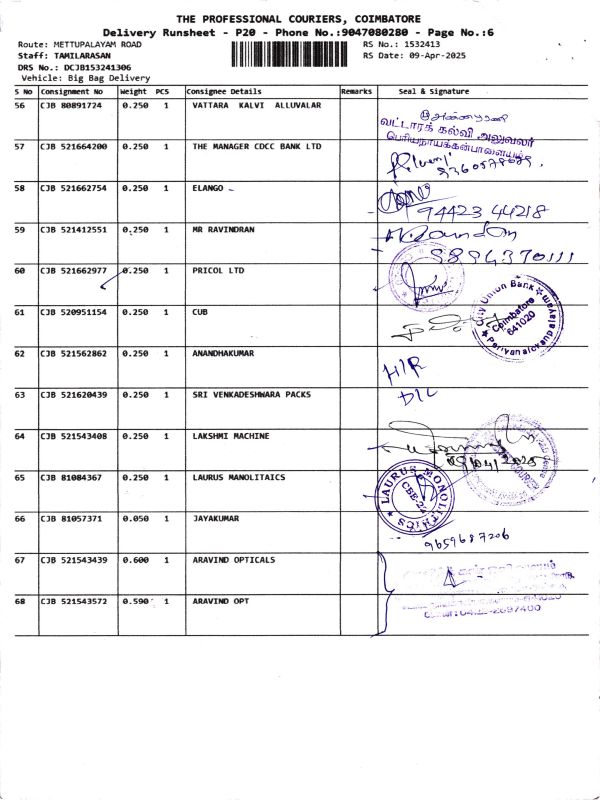 THE PROFESSIONAL COURIERS, COIMBATORE
Delivery Runsheet - P20 - Phone No.:9047080280 - Page No.:6
Route: METTUPALAYAM ROAD RS No.: 1532413
Staff: TAMILARASAN RS Date: 09-Apr-2025
DRS No.: DCJB153241306
Vehicle: Big Bag Delivery
S No Consignment No Weight PCS Consignee Details Remarks Seal & Signature
56 CJB 80891724 0.250 1 VATTARA KALVI ALLUVALAR
வட்டாரக் கல்வி அலுவலர்
பெரியநாயக்கன்பாளையம்
57 CJB 521664200 0.250 1 THE MANAGER CDCC BANK LTD
58 CJB 521662754 0.250 1 ELANGO
94423 44218
59 CJB 521412551 0.250 1 MR RAVINDRAN
9894370111
60 CJB 521662977 0.250 1 PRICOL LTD
61 CJB 520951154 0.250 1 CUB
City Union Bank
Coimbatore
641020
Periyanaickenpalayam
62 CJB 521562862 0.250 1 ANANDHAKUMAR
H/R
63 CJB 521620439 0.250 1 SRI VENKADESHWARA PACKS
D/L
64 CJB 521543408 0.250 1 LAKSHMI MACHINE
09/04/2025
65 CJB 81084367 0.250 1 LAURUS MANOLITAICS
LAURUS MONOLITHICS
CBE-22
66 CJB 81057371 0.050 1 JAYAKUMAR
9659687206
67 CJB 521543439 0.600 1 ARAVIND OPTICALS
68 CJB 521543572 0.590 1 ARAVIND OPT
2697400